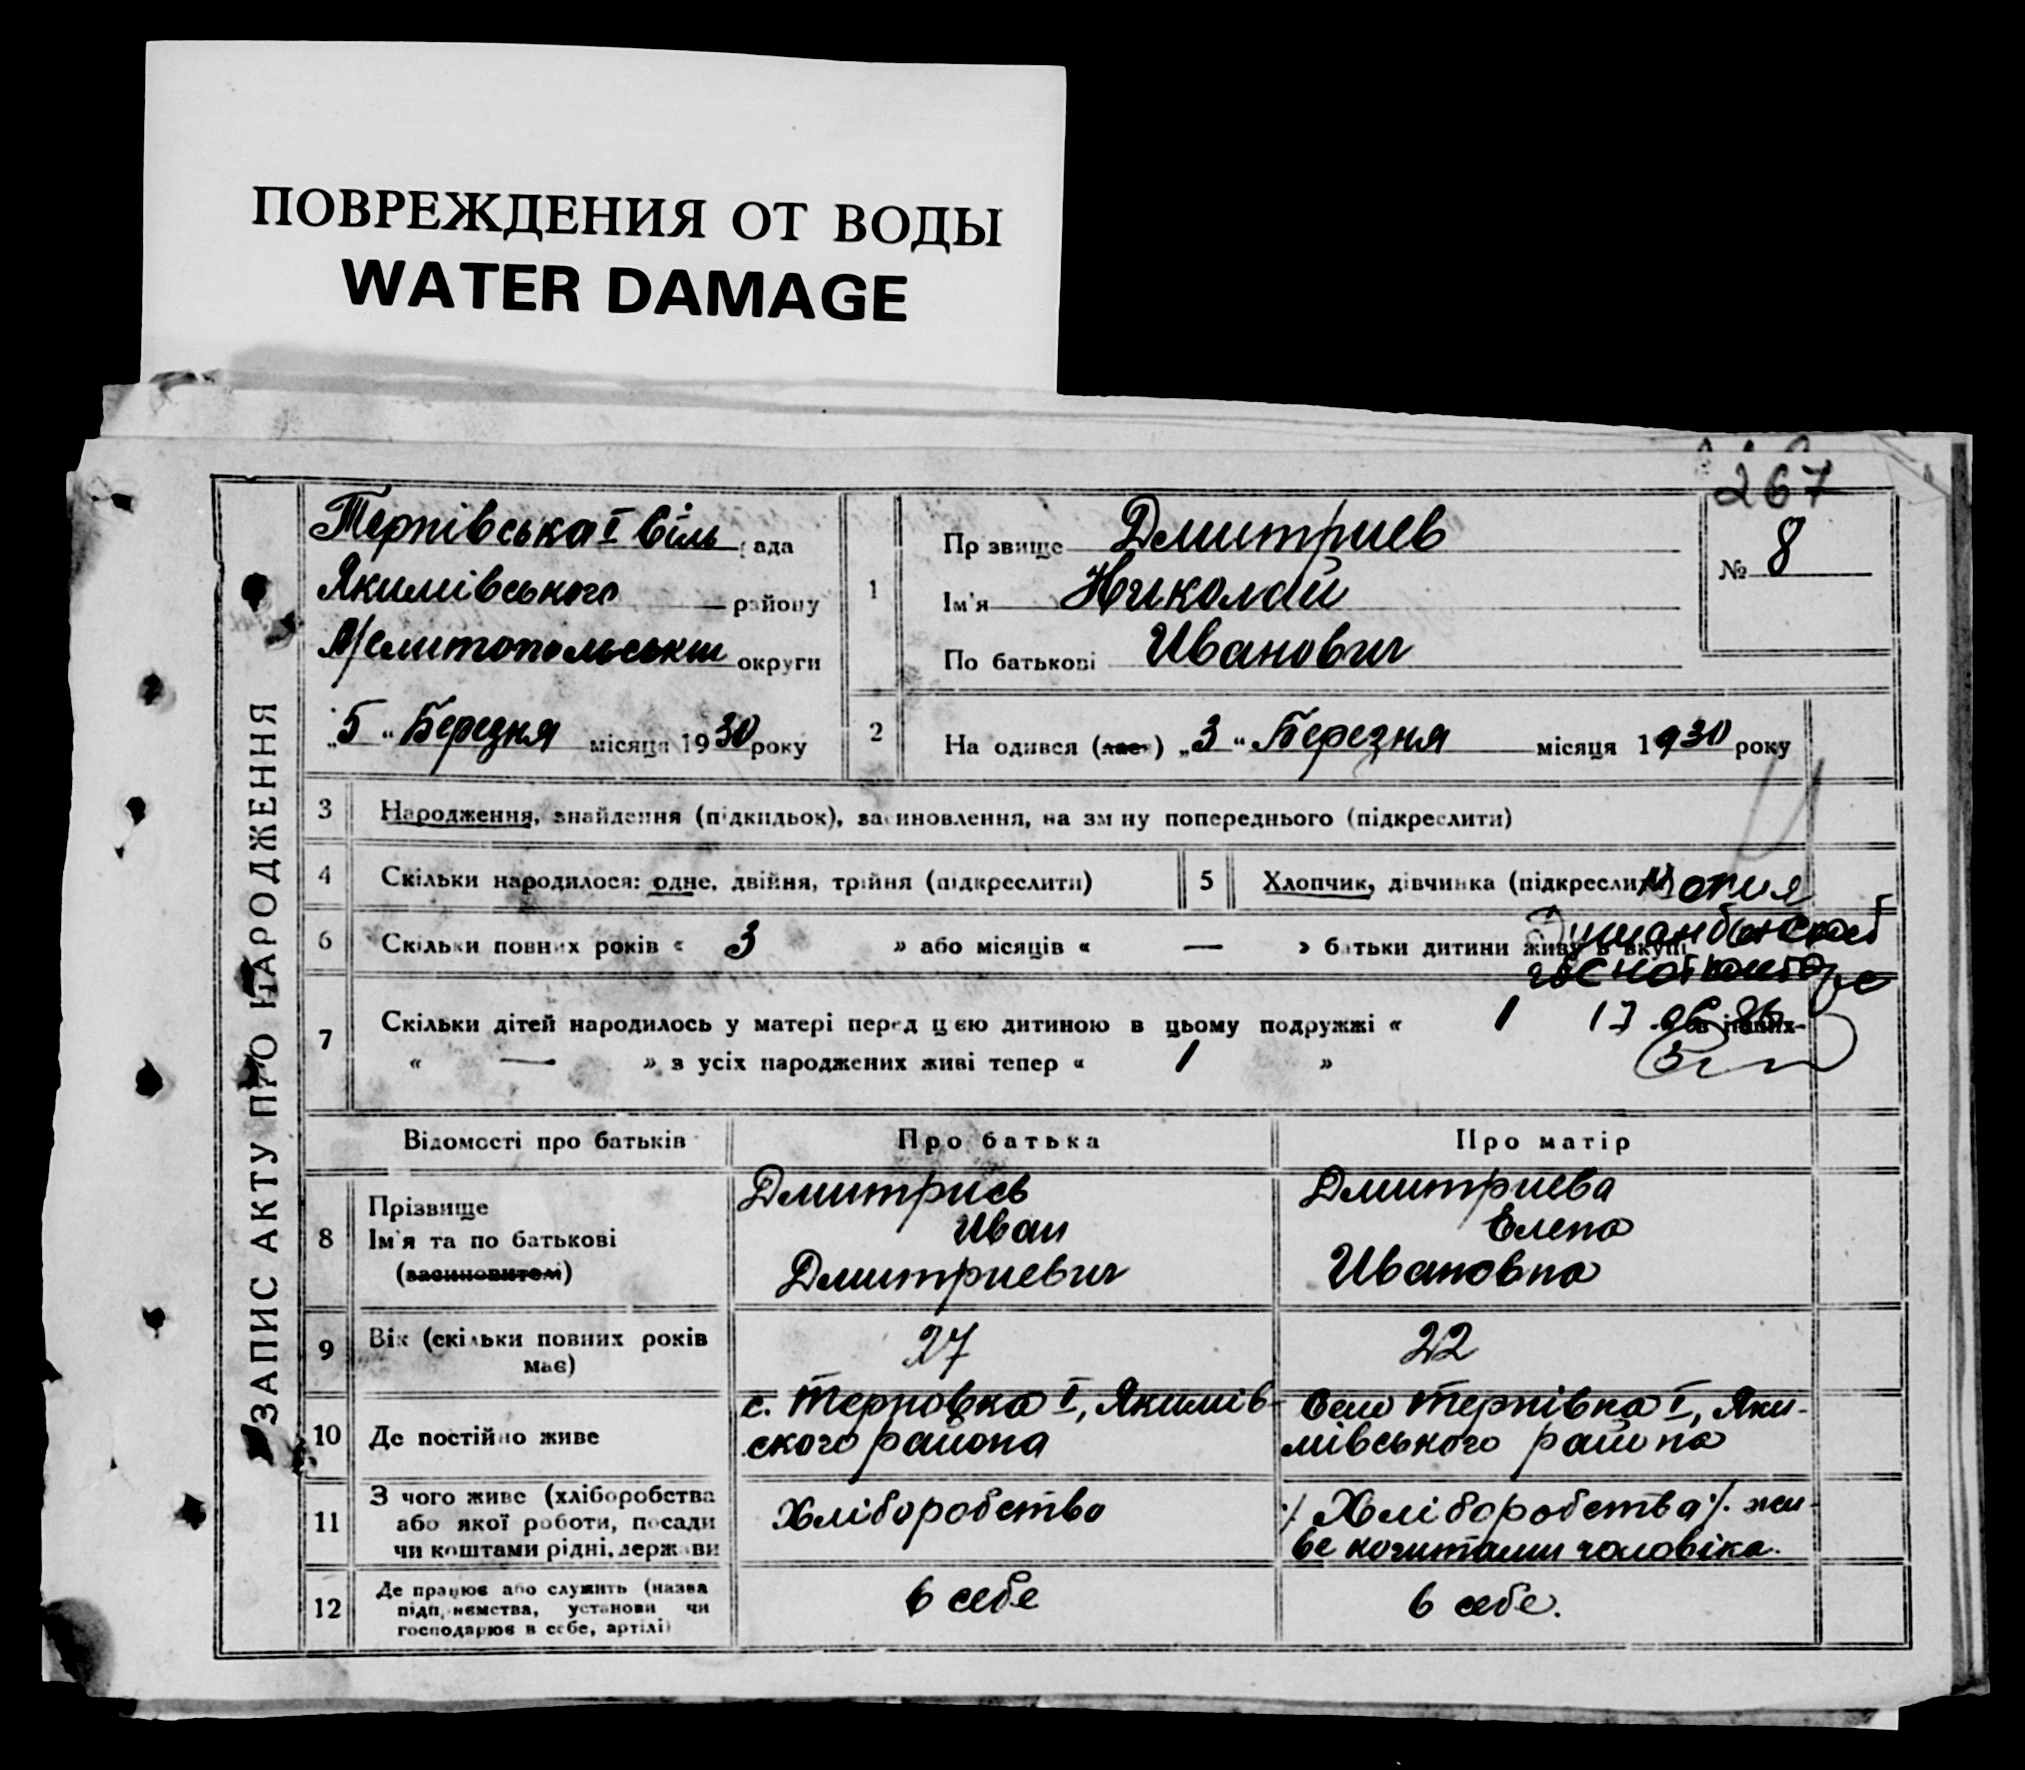 ПОВРЕЖДЕНИЯ ОТ ВОДЫ
WATER DAMAGE
267
ЗАПИС АКТУ ПРО НАРОДЖЕННЯ
Терпівська I Віль рада
Якимівського району
Мелитопольськ округи
„5" Березня місяця 1930 року
1
Прзвище Дмитриев
Ім'я Николай
По батькові Иванович
№ 8
2
На одився (лась) „3" Березня місяця 1930 року
3 Народження, знайдення (підкидьок), засиновлення, на зм ну попереднього (підкреслити)
4 Скільки народилося: одне, двійня, трійня (підкреслити)
5 Хлопчик, дівчинка (підкресли
Копия
6 Скільки повних років « 3 » або місяців « — » батьки дитини живу в вкупі
7 Скільки дітей народилось у матері перед цією дитиною в цьому подружжі « 1
17.06.86
« — » з усіх народжених живі тепер « 1 »
Відомості про батьків Про батька Про матір
8 Прізвище
Ім'я та по батькові
(васиновителі)
Дмитриев
Иван
Дмитриевич
Дмитриева
Елена
Ивановна
9 Вік (скільки повних років
має)
27
22
10 Де постійно живе
с. Терновка I, Якимів-
ского района
Село Терпівка I, Яки-
мівського района
11 З чого живе (хліборобства
або якої роботи, посади
чи коштами рідні, держави
Хліборобство
·/. Хліборобства ·/. жи-
ве коштами чоловіка.
12 Де працює або служить (назва
підп, иємства, установи чи
господарює в себе, артілі)
в себе
в себе.